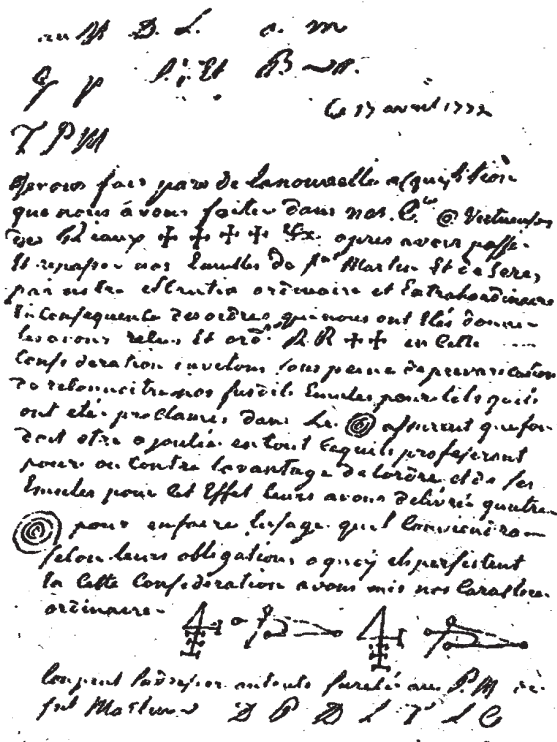 au D. L. a. m
G P Et B
Le 17 avril 1772
T P M
Je vous fais part de la nouvelle acquisition
que nous avons faites dans nos. C. Vertueuses
des Reaux ✝ ✝ ✝ ✝ apres avoir passé
Et repasser nos Emules de Martin Et de Seres
par nostre ordinaire et Extraordinaire
En Consequence des ordres que nous ont Etés donne
les avons relus Et ord. R R ✝ ✝ en Cette
Consideration invitons sous peine de prevarication
de reconnoitre nos susdits Emules pour tels qu'ils
ont eté proclamés dans Le assurent que foy
doit etre ajoutée en tout Ce qu'ils professeront
pour ou Contre lavantage de lordre et de ses
Emules pour Cet Effet leurs avons delivrée quattre
pour en faire lusage quil Conviendra
selon leurs obligations a quoy els persistent
En Cette Consideration avons mis nos Caractere
ordinaire.
4 4
Lon peut en toute sureté au P M
D P D L T L C